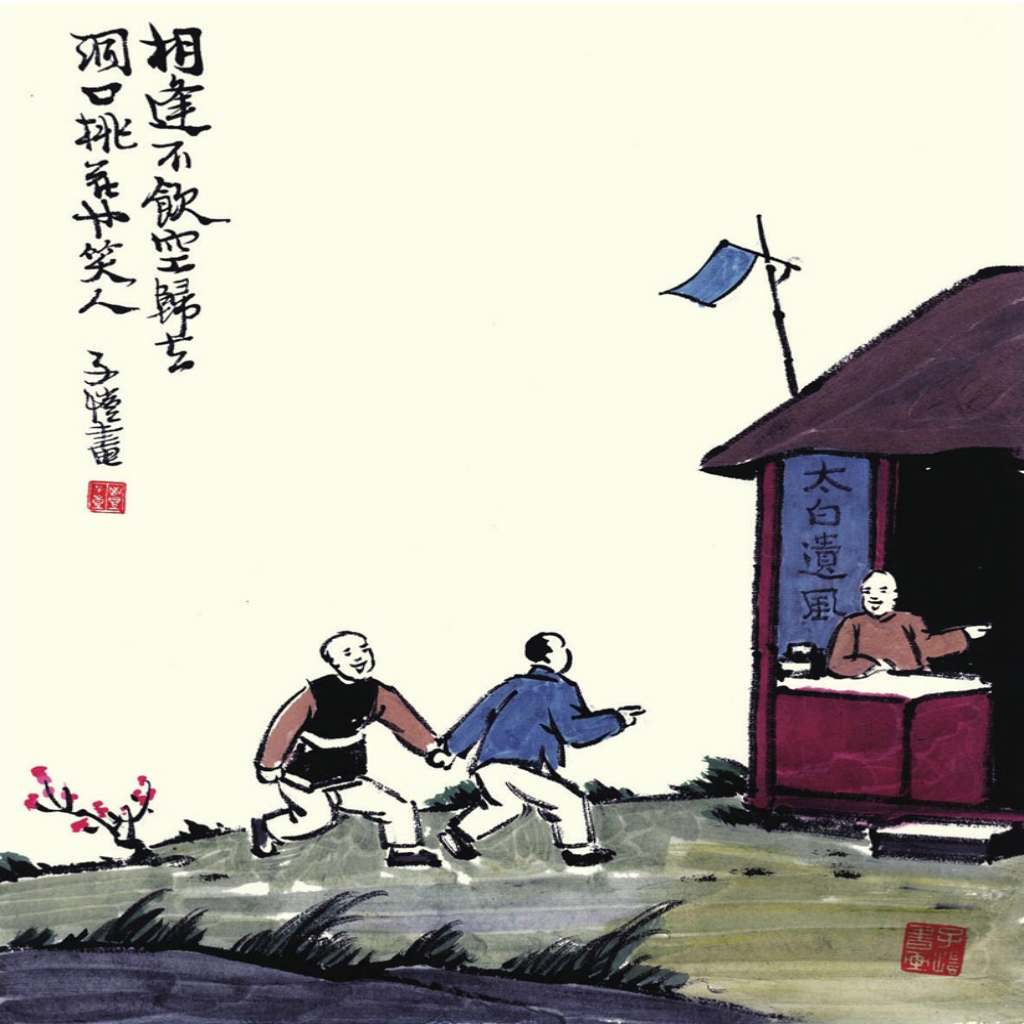 相逢不飲空歸去
洞口桃花也笑人
子愷畫
太白遺風
子愷書画